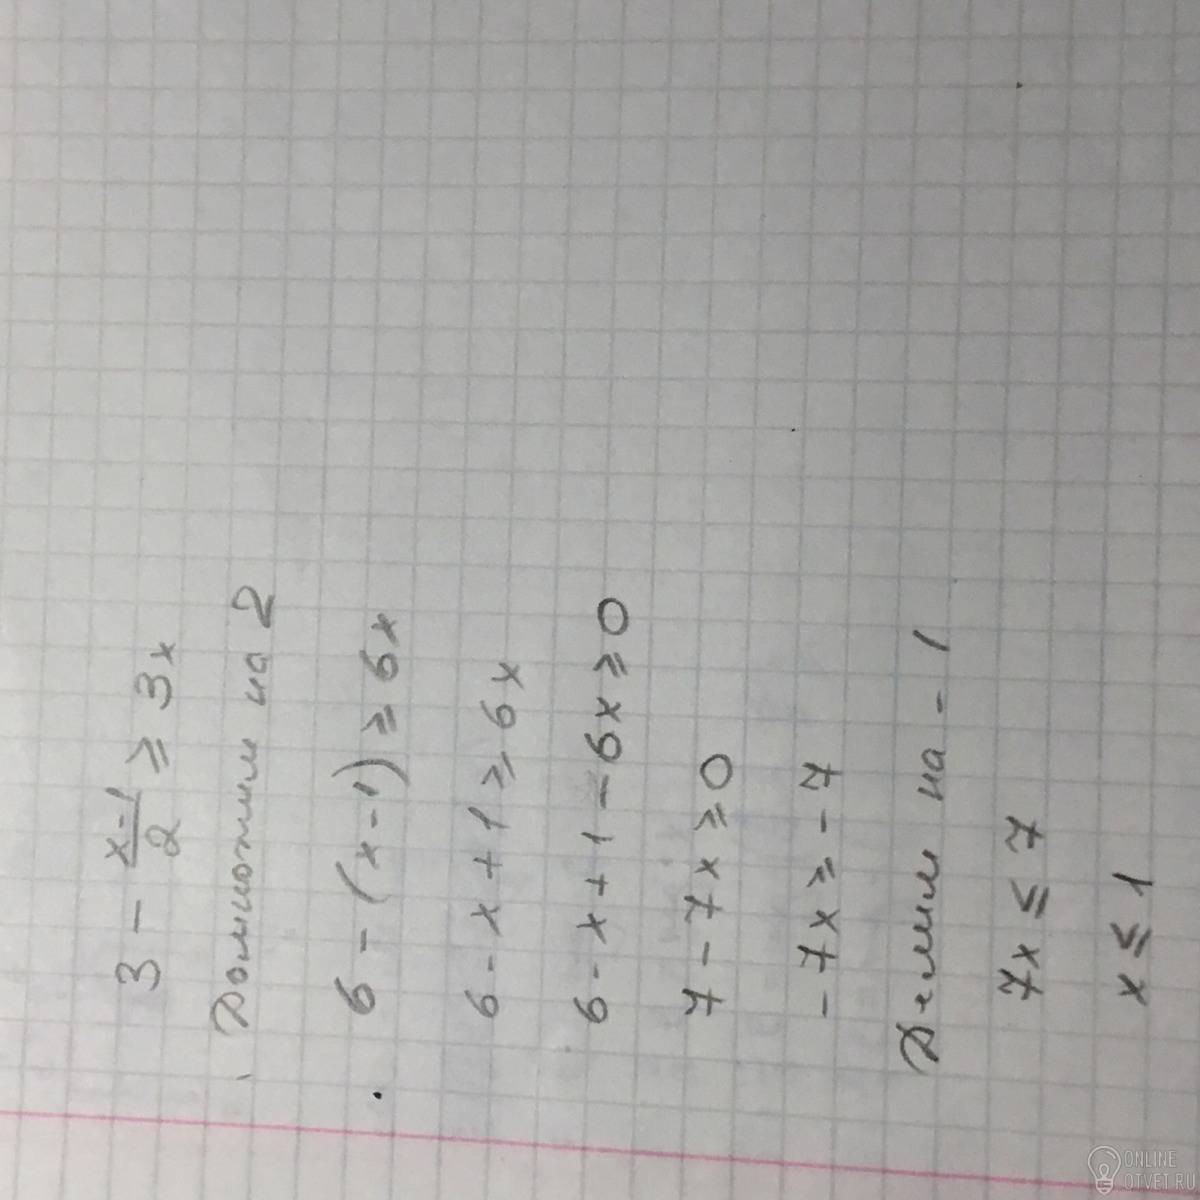 3 - \frac{x-1}{2} ≥ 3x
Домножим на 2
6 - (x - 1) ≥ 6x
6 - x + 1 ≥ 6x
6 - x + 1 - 6x ≥ 0
7 - 7x ≥ 0
-7x ≥ -7
Делим на -1
7x ≤ 7
x ≤ 1
ONLINE
OTVET.RU